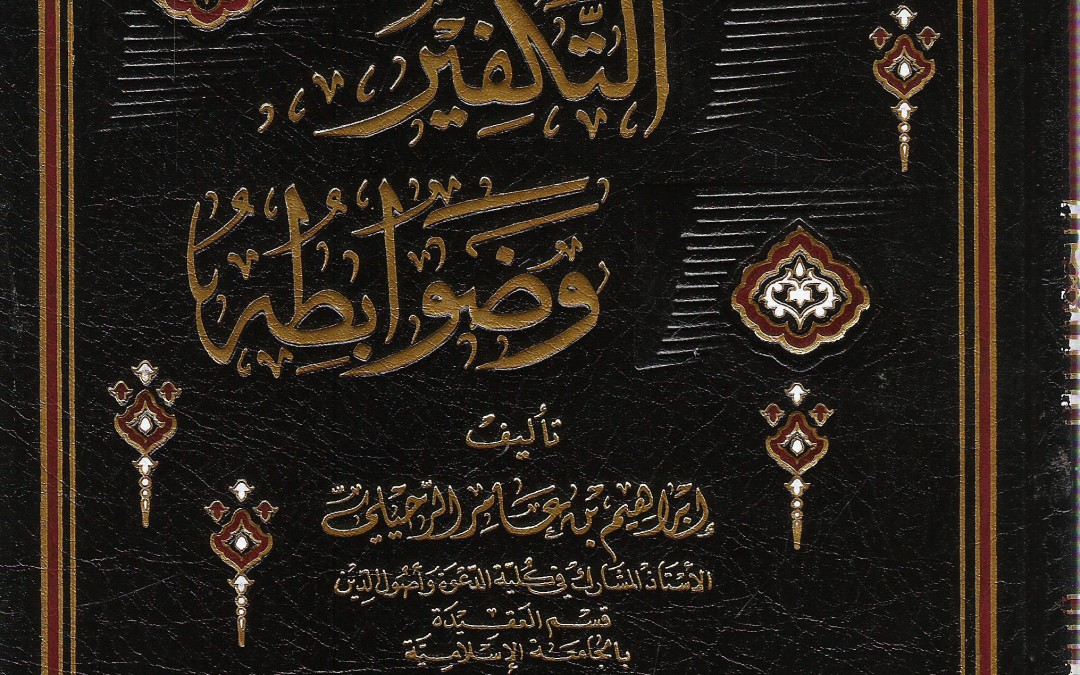 التَّكْفِيْرُ
وَضَوَابِطُهُ
تأليف
إبراهيم بن عامر الرحيلي
الأستاذ المشارك في كلية الدعوة وأصول الدين
قسم العقيدة
بالجامعة الإسلامية